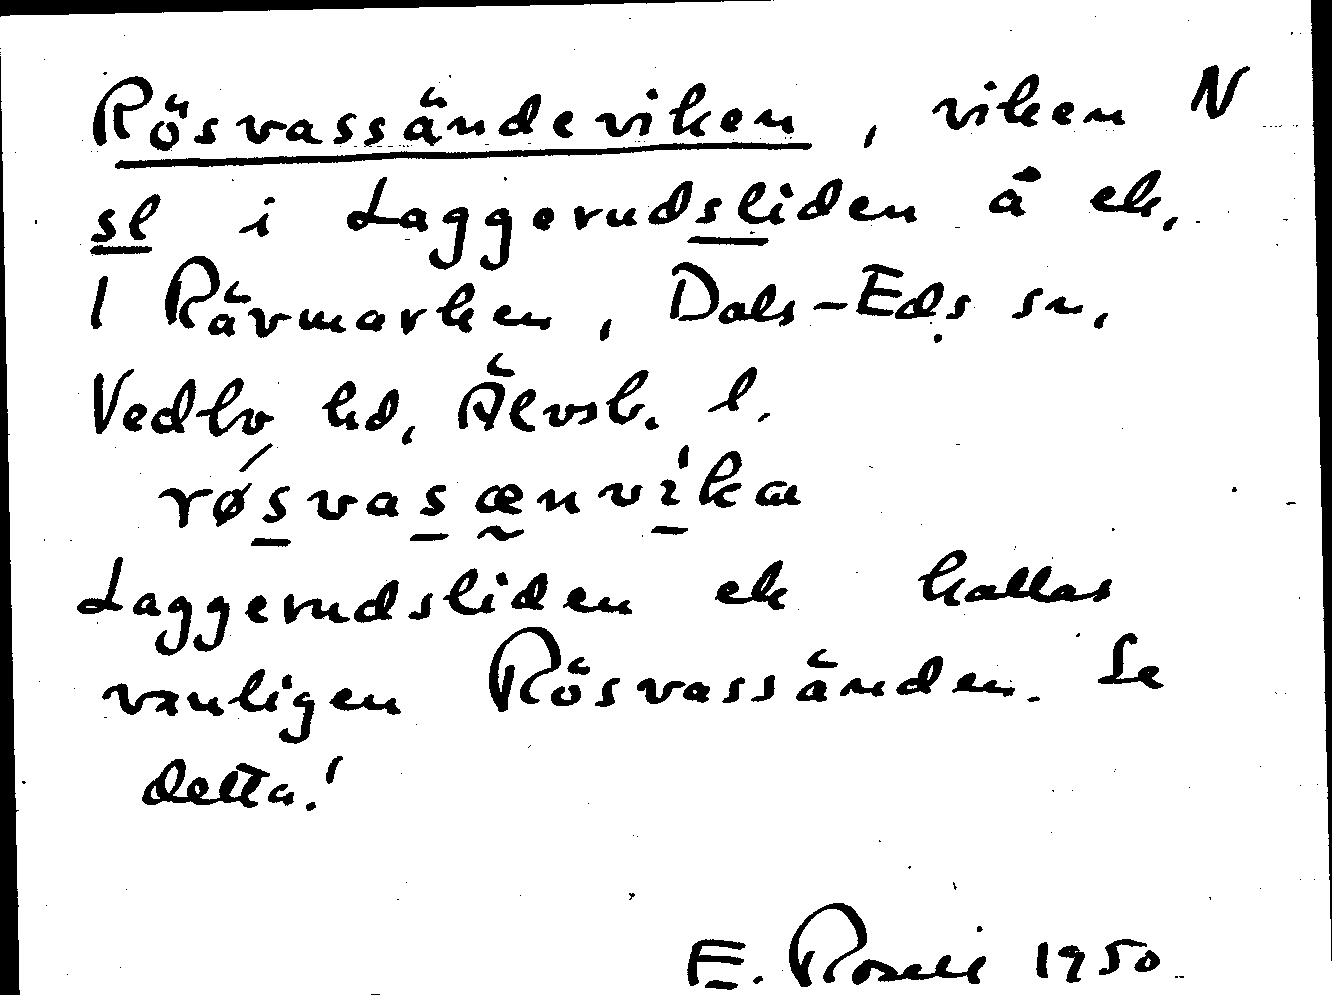 Rösvassändeviken, viken N
sl i Laggerudsliden å ek.
1 Rävmarken, Dals-Eds sn,
Vedbo hd, Älvsb. l.
røsvasænvika
Laggerudsliden ek kallas
vanligen Rösvassänden. Se
detta!
E. Rosell 1950